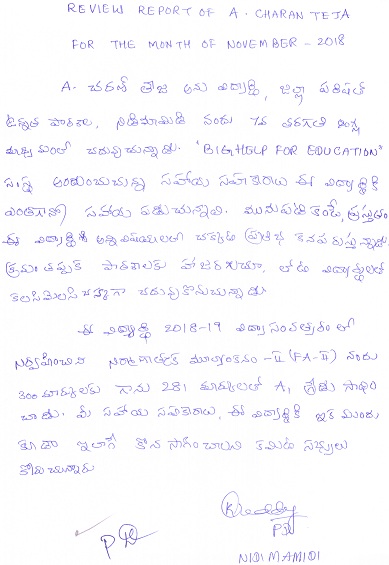 REVIEW REPORT OF A. CHARAN TEJA
FOR THE MONTH OF NOVEMBER - 2018
A. చరణ్ తేజ అను విద్యార్థి, జిల్లా పరిషత్
ఉన్నత పాఠశాల, నిడిమామిడి నందు 7వ తరగతి ఇంగ్లీషు
మాధ్యమంలో చదువుచున్నాడు. "BIGHELP FOR EDUCATION"
సంస్థ అందించుచున్న సహాయ సహకారాలు ఈ విద్యార్థికి
ఎంతగానో సహాయ పడుచున్నవి. మునుపటి కంటే, ప్రస్తుతం
ఈ విద్యార్థి అన్ని విషయాలలో చక్కటి ప్రతిభ కనపరుస్తున్నాడు.
క్రమం తప్పక పాఠశాలకు హాజరగుచూ, తోటి విద్యార్థులతో
కలసిమెలసి చక్కగా చదువుకొనుచున్నాడు.
ఈ విద్యార్థి 2018-19 విద్యా సంవత్సరం లో
నిర్వహించిన నిర్మాణాత్మక మూల్యాంకనం - II (FA-II) నందు
300 మార్కులకు గాను 281 మార్కులతో A1 గ్రేడు సాధించి
నాడు. మీ సహాయ సహకారాలు, ఈ విద్యార్థికి ఇక ముందు
కూడా ఇలాగే కొనసాగించాలని కమిటీ సభ్యులు
కోరుచున్నారు
NIDIMAMIDI